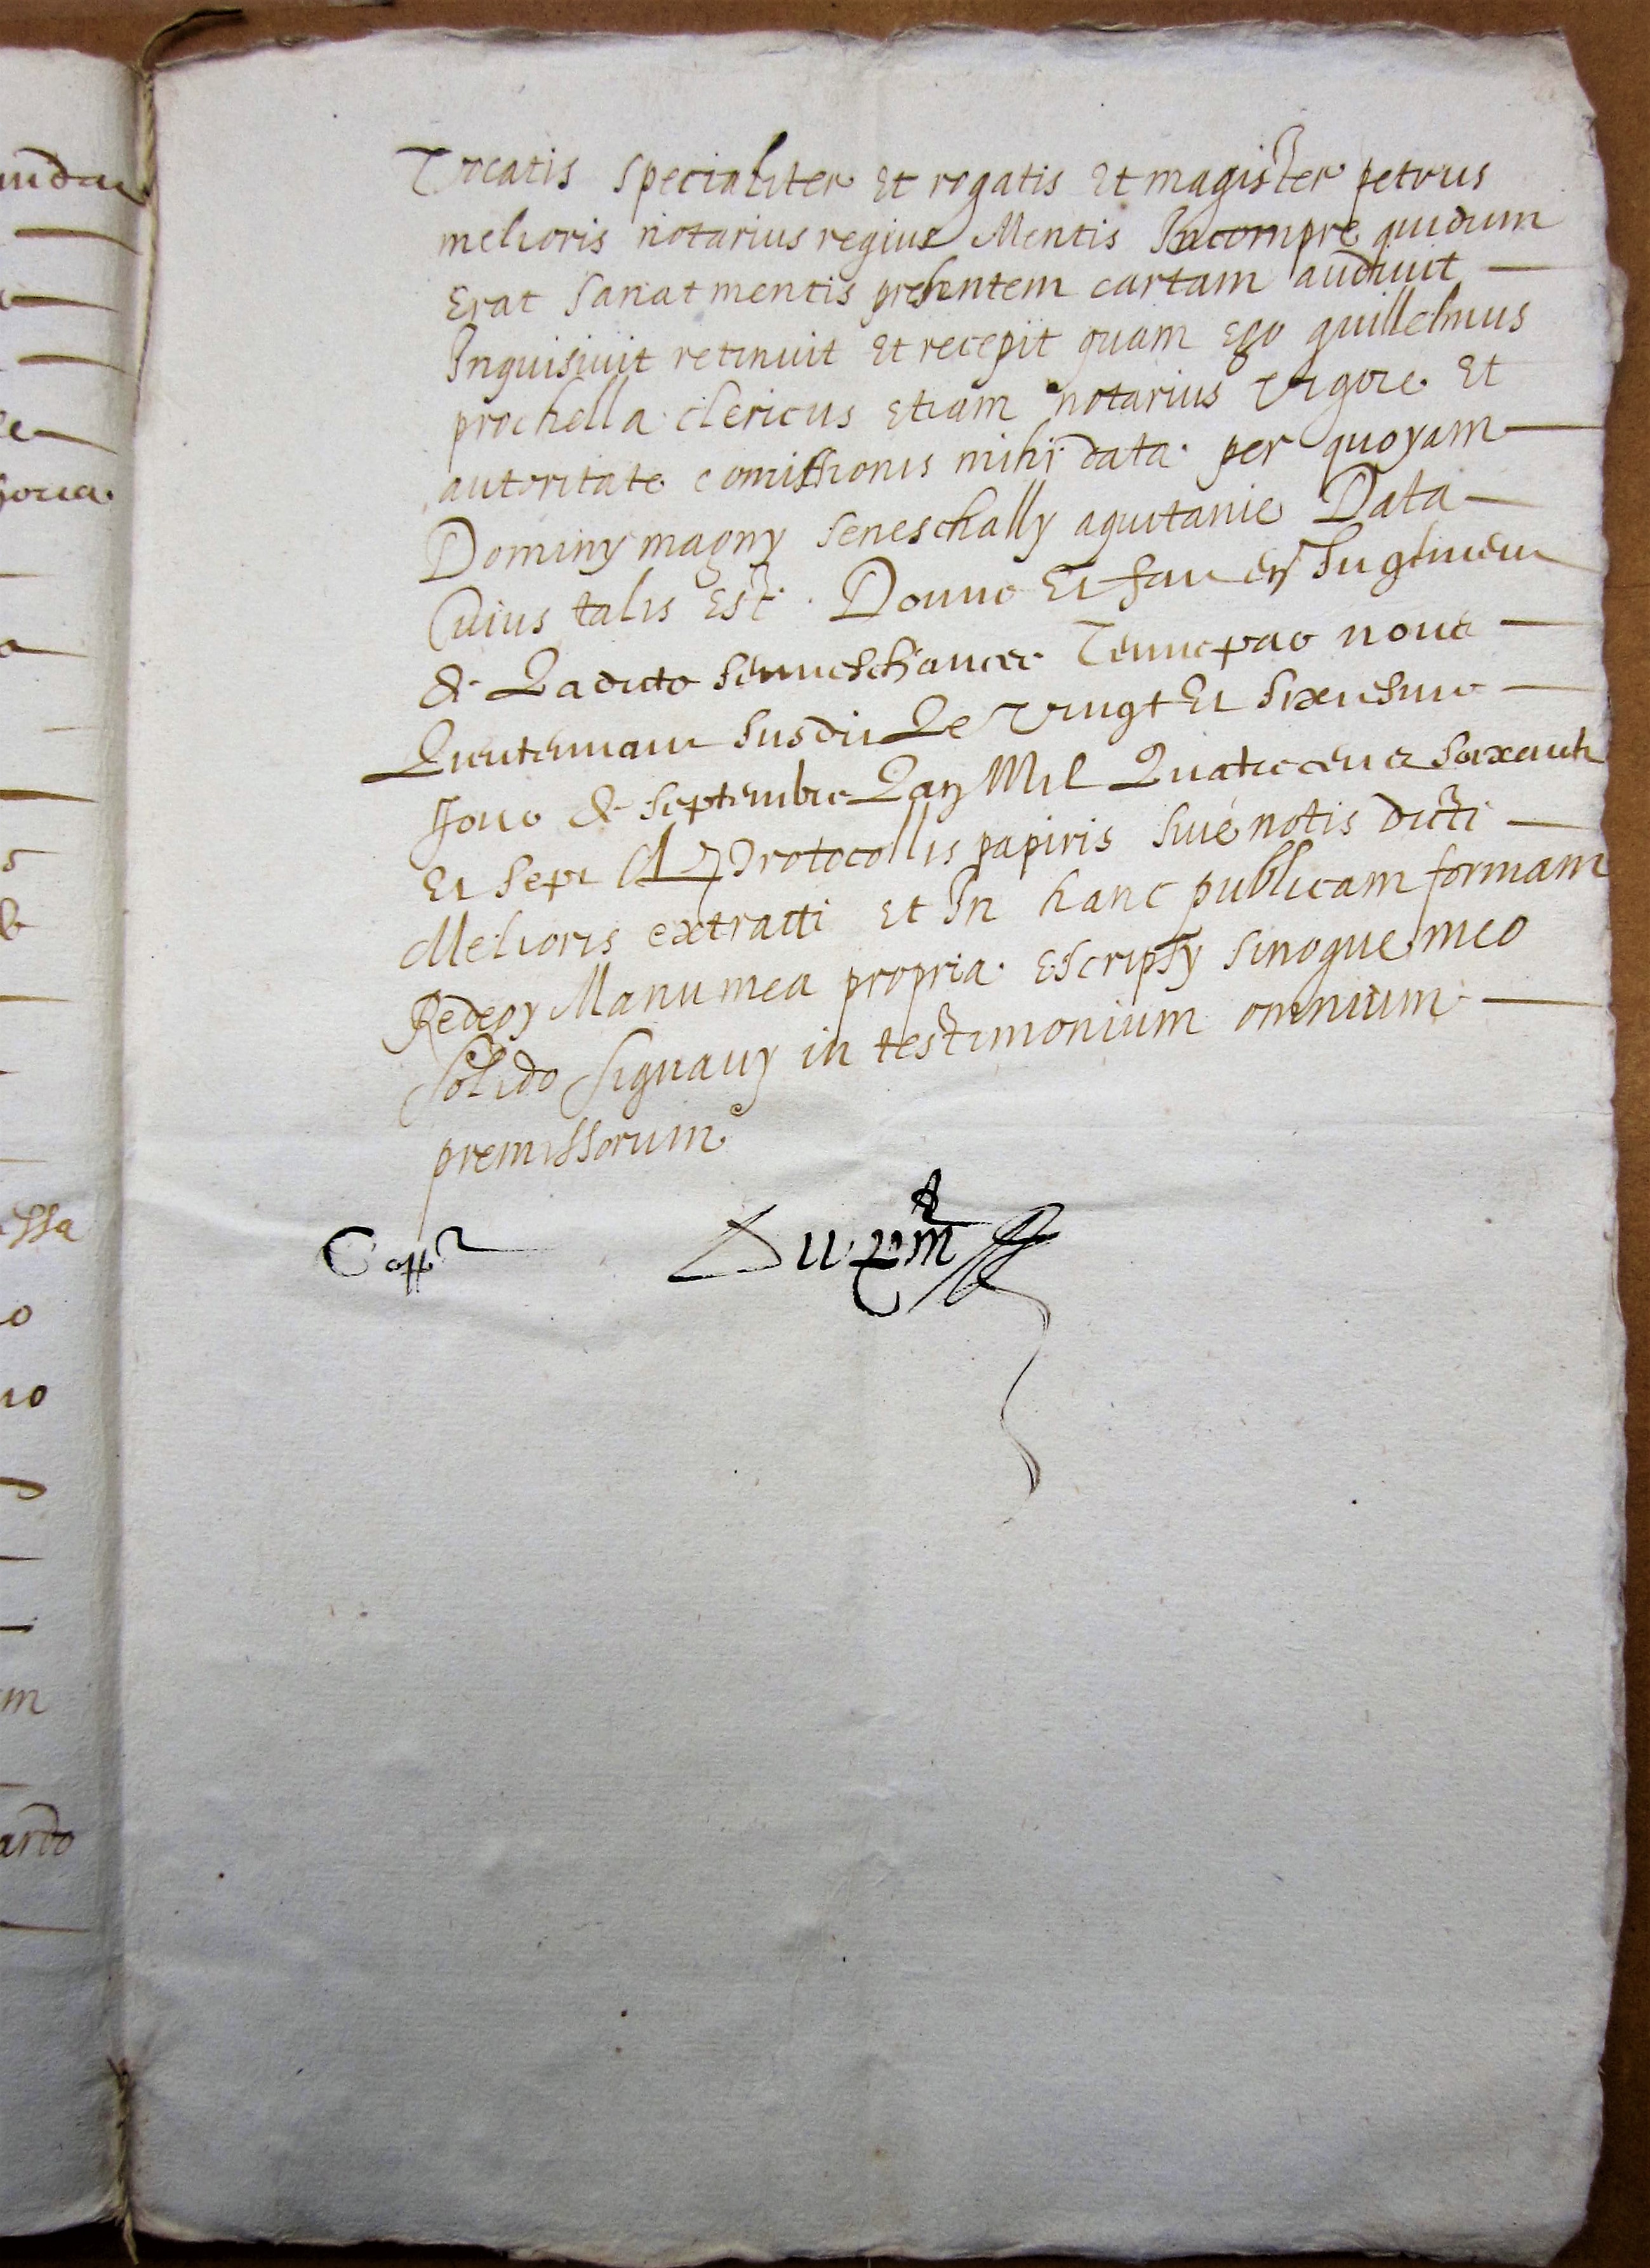 Vocatis specialiter Et rogatis Et magister petrus
melioris notarius regius Mentis Incompre quidum
Erat sanat mentis presentem cartam audiuit
Inquisiuit retinuit Et recepit quam Ego guillelmus
prochella clericus Etiam notarius vigore Et
autoritate comissionis mihi data per quoyam
Dominy magny seneschally aquitanie Data
Cuius talis Est. Donne Et fau en Jugement
de La dicte senneschaucee Tenue par nous
Lieutennant susdit Le vingt Et sixiesme
Jour de septembre L'an Mil Quatre cens soixante
Et sept A Protocollis papiris siue notis dicti
Melioris extracti Et In hanc publicam formam
Redegy Manu mea propria Escripsy sinoque meo
solido signauy in testimonium omnium
premissorum
Copp